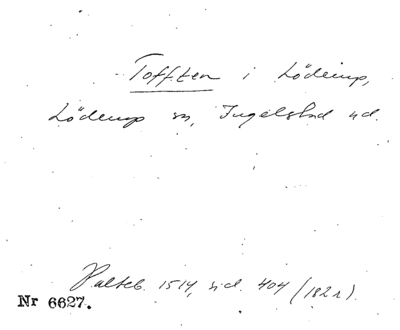 Tofften i Löderup,
Löderup sn, Ingelstad hd.
Palteb. 1514, sid. 404 (182r).
Nr 6627.